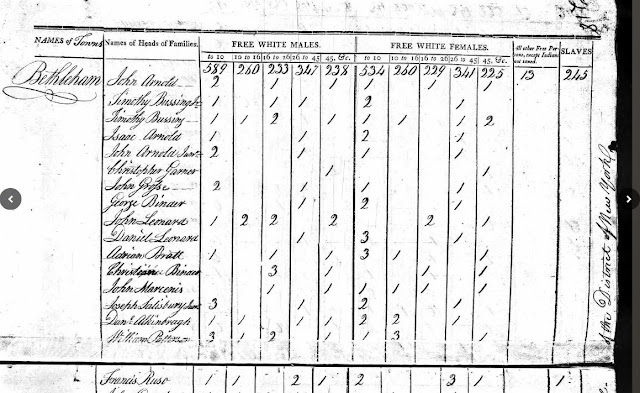 NAMES of Towns Names of Heads of Families. FREE WHITE MALES. FREE WHITE FEMALES. All other Free Persons, except Indians not taxed. SLAVES
to 10 10 to 16 16 to 26 26 to 45 45, &c. to 10 10 to 16 16 to 26 26 to 45 45, &c.
Bethleham 589 260 233 347 238 534 260 229 341 225 13 245
John Arnold 2 1 1 1 1 1
Timothy 1 1 1 2 1
Timothy 1 1 2 1 1 1 1 2
Isaac Arnold 1 1 2 1
John Arnold Junr 2 1 1 1
Christopher Garner 1 1
John 2 1 1 1
George Binder 1 2 1
John Leonard 1 2 2 2 2 1
Daniel Leonard 1 3 1
Adrian Bratt 1 1 1 3 1 1 1
Christian Binder 3 1 1 1 1
John Marcenis 1 1 1 1 1 1
Joseph Salisbury Junr 3 1 2 1
Danl 1 1 1 2 2 1
William 3 1 2 1 1 3 1
of the District of New York
Francis Ruso 1 1 2 1 2 3 1 1